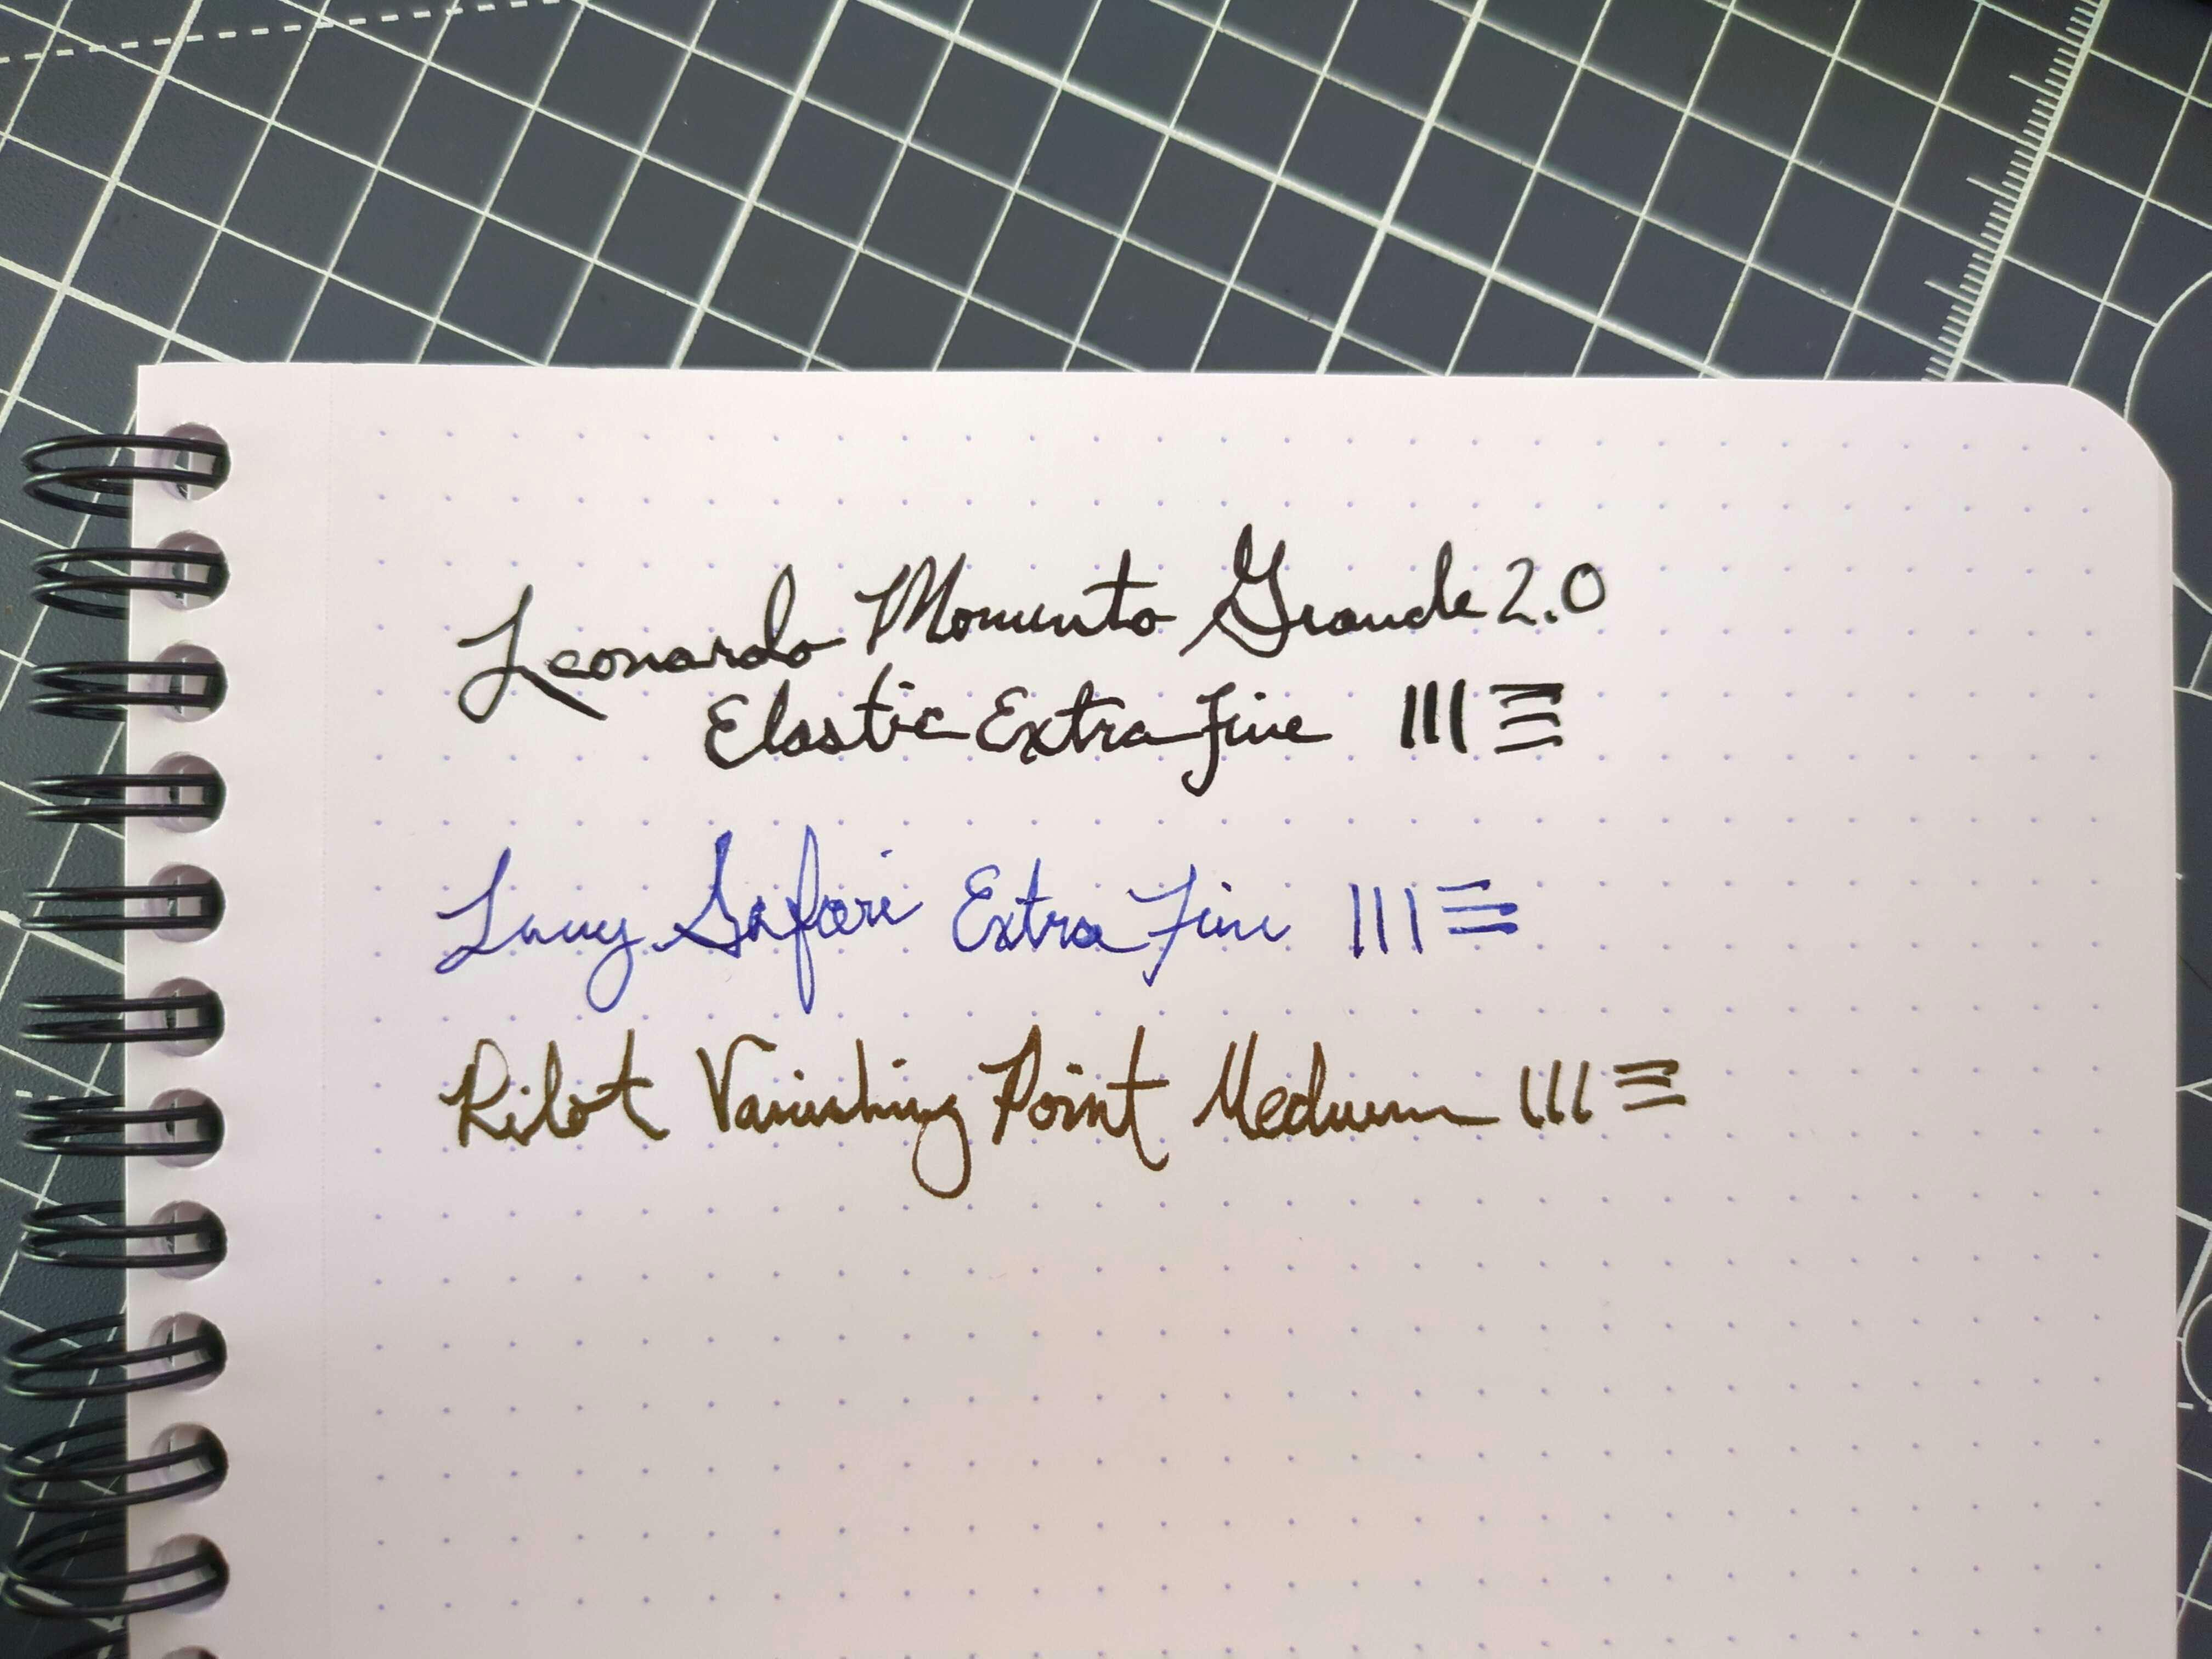 Leonardo Momento Grande 2.0
Elastic Extra Fine
Lamy Safari Extra Fine
Pilot Vanishing Point Medium